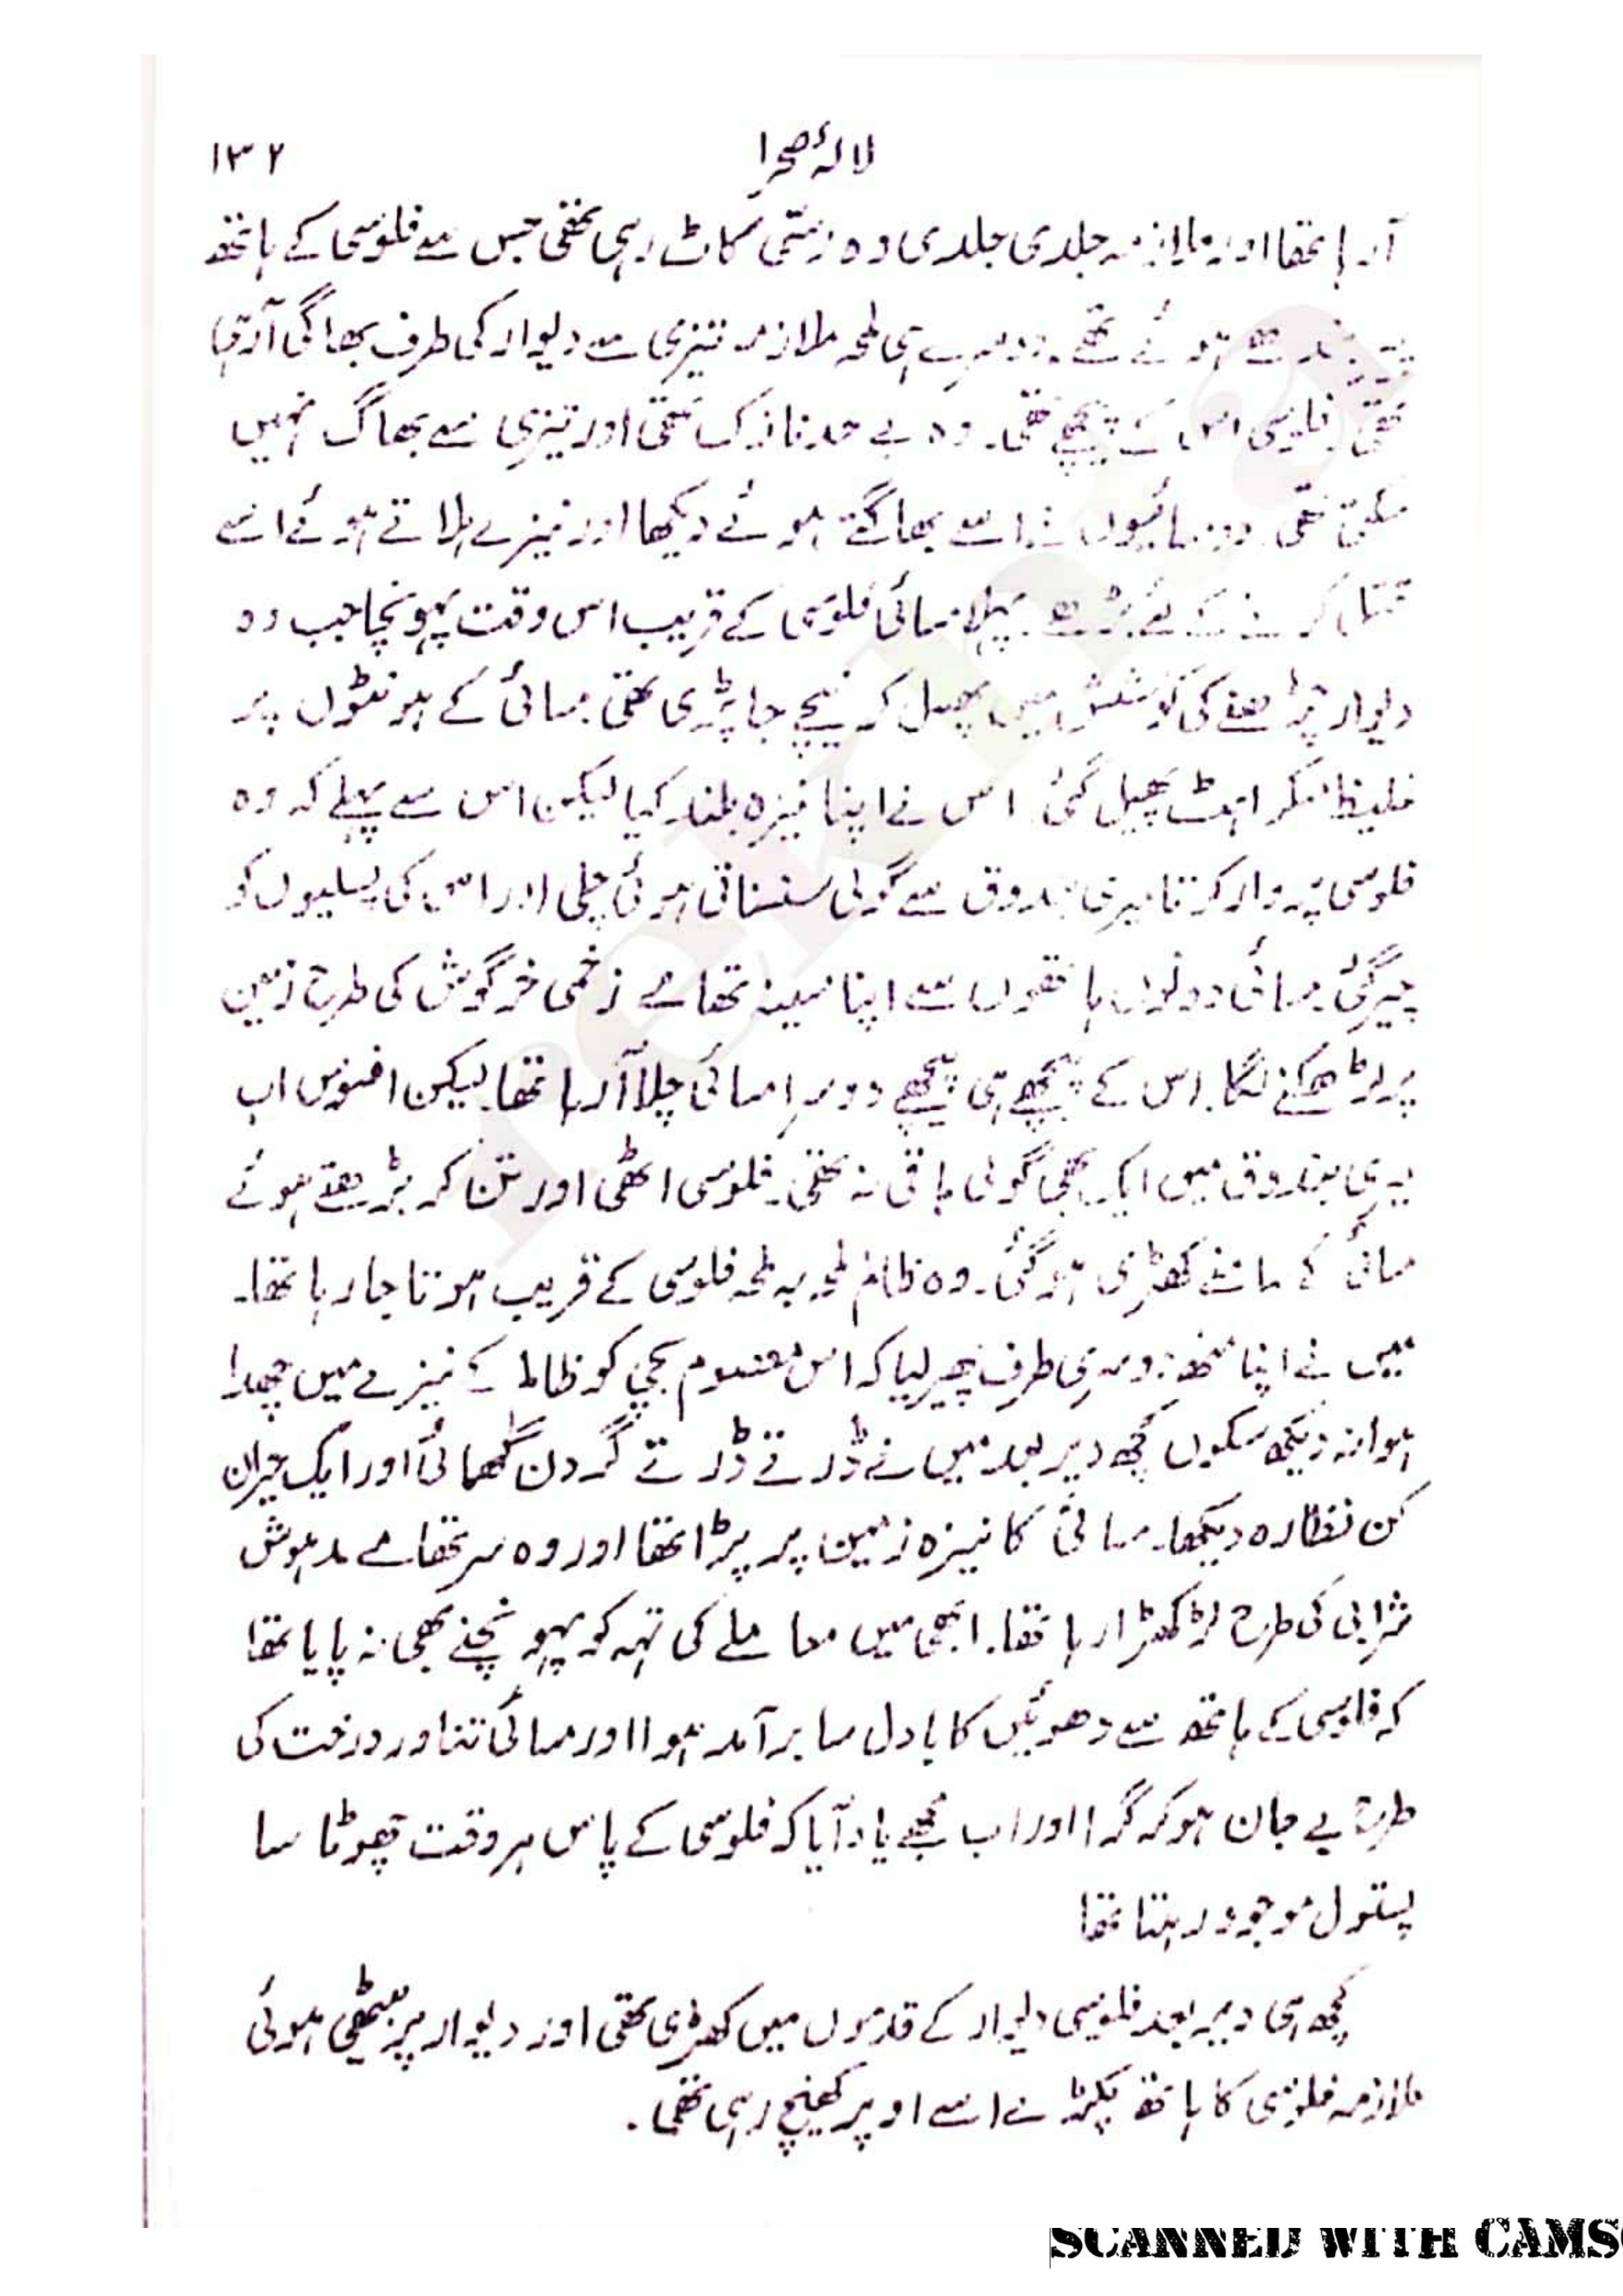 لالۂ صحرا
۱۳۲
آرہا تھا اور ملازمہ جلدی جلدی وہ رسّی کاٹ رہی تھی جس سے فلوسی کے ہاتھ
پیر بندھے ہوئے تھے۔ دوسرے ہی لمحہ ملازمہ تیزی سے دیوار کی طرف بھاگی آرہی
تھی۔ فلوسی اس کے پیچھے تھی۔ وہ بے حد نازک تھی اور تیزی سے بھاگ نہیں
سکتی تھی۔ دو مسائیوں نے اسے بھاگتے ہوئے دیکھا اور نیزے ہلاتے ہوئے اسے
قتل کرنے کے لئے بڑھے۔ پہلا مسائی فلوسی کے قریب اس وقت پہونچا جب وہ
دیوار چڑھنے کی کوشش میں پھسل کر نیچے جا پڑی تھی۔ مسائی کے ہونٹوں پر
غلیظ مسکراہٹ پھیل گئی۔ اس نے اپنا نیزہ بلند کیا لیکن اس سے پہلے کہ وہ
فلوسی پر وار کرتا میری بندوق سے گولی سنسناتی ہوئی چلی اور اس کی پسلیوں کو
چیر گئی۔ مسائی دونوں ہاتھوں سے اپنا سینہ تھامے زخمی خرگوش کی طرح زمین
پر لڑھکنے لگا۔ اس کے پیچھے ہی پیچھے دوسرا مسائی چلا آرہا تھا۔ لیکن افسوس اب
میری بندوق میں ایک بھی گولی باقی نہ تھی۔ فلوسی اٹھی اور تن کر بڑھتے ہوئے
مسائی کے سامنے کھڑی ہوگئی۔ وہ ظالم لمحہ بہ لمحہ فلوسی کے قریب ہوتا جارہا تھا۔
میں نے اپنا منھ دوسری طرف پھیر لیا کہ اس معصوم بچی کو ظالم کے نیزے میں چھدا
ہوا نہ دیکھ سکوں کچھ دیر بعد میں نے ڈرتے ڈرتے گردن گھمائی اور ایک حیران
کن نظارہ دیکھا۔ مسائی کا نیزہ زمین پر پڑا تھا اور وہ سر تھامے مدہوش
شرابی کی طرح لڑکھڑا رہا تھا۔ ابھی میں معاملے کی تہہ کو پہونچنے بھی نہ پایا تھا
کہ فلوسی کے ہاتھ سے دھوئیں کا بادل سا برآمد ہوا اور مسائی تناور درخت کی
طرح بے جان ہوکر گرا اور اب مجھے یاد آیا کہ فلوسی کے پاس ہر وقت چھوٹا سا
پستول موجود رہتا تھا
کچھ ہی دیر بعد فلوسی دیوار کے قدموں میں کھڑی تھی اور دیوار پر بیٹھی ہوئی
ملازمہ فلوسی کا ہاتھ پکڑے اسے اوپر کھینچ رہی تھی۔
rekhta
SCANNED WITH CAMS